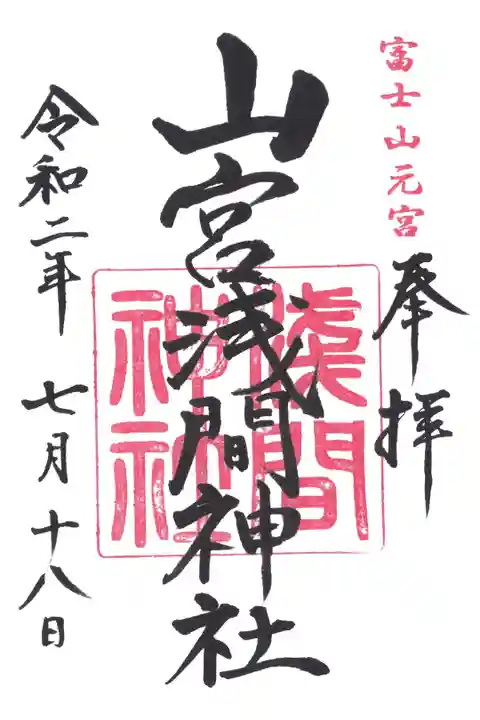 富士山元宮
奉拝
山宮浅間神社
淺間
神社
令和二年 七月十八日